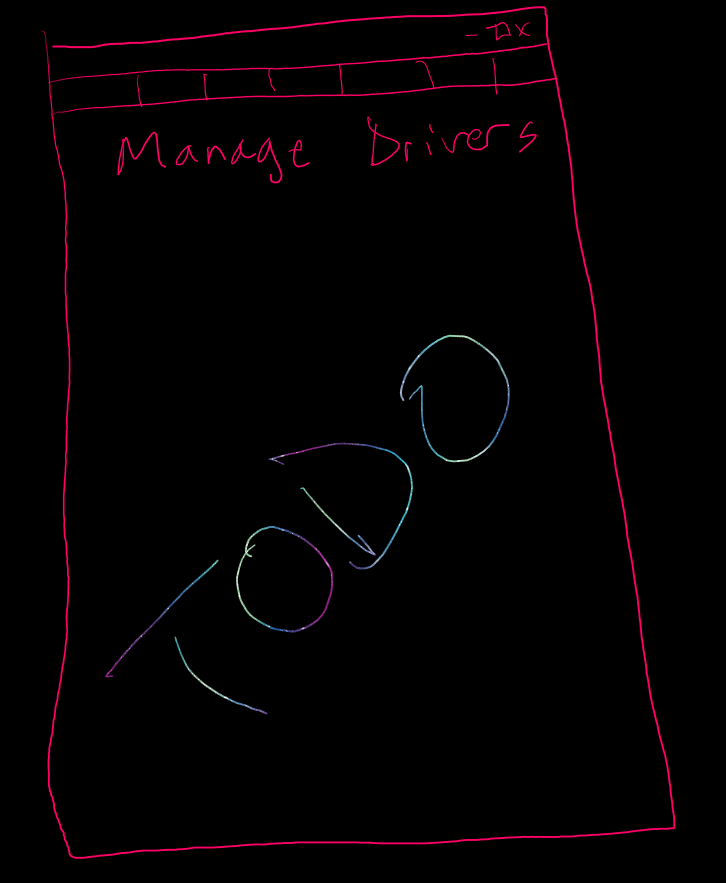 Manage Drivers
TODO